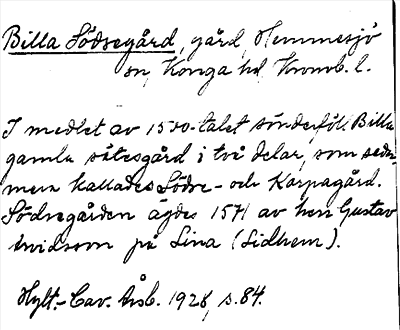 Billa Södregård, gård, Hemmesjö
sn, Konga hd, Kronob. l.
I medlet av 1500-talet sönderföll Billa
gamla sätesgård i två delar, som seder-
mera kallades Södre- och Korpagård.
Södregården ägdes 1571 av herr Gustav
på Lina (Lidhem).
Hylt.-Cav. Årsb. 1928, s. 84.